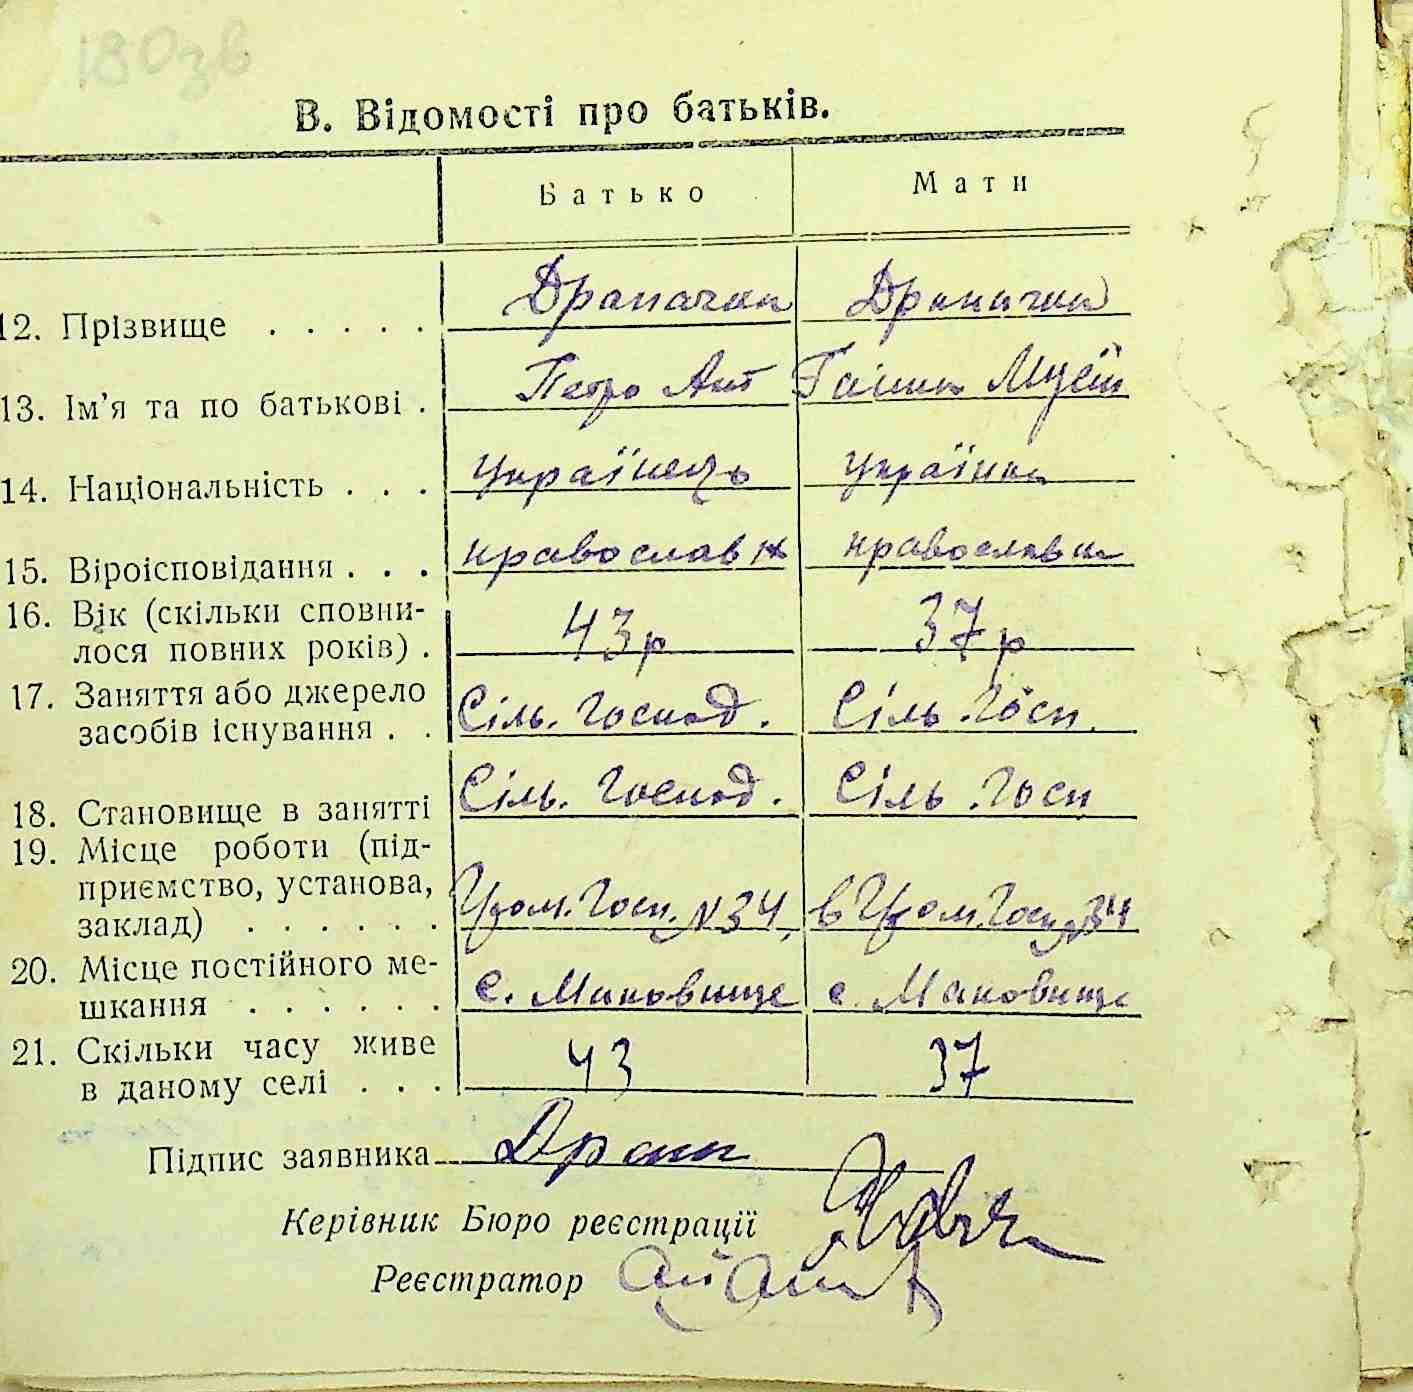 180зв
В. Відомості про батьків.
Батько Мати
12. Прізвище . . . . . Драпачка Драпачка
13. Ім'я та по батькові . Петро Ант Ганна Мусій
14. Національність . . . Українець Українка
15. Віроісповідання . . . православн православн
16. Вік (скільки сповни-
лося повних років) . 43 р 37 р
17. Заняття або джерело
засобів існування . . Сіль. Господ. Сіль. Госп.
18. Становище в занятті Сіль. Господ. Сіль. Госп
19. Місце роботи (під-
приємство, установа,
заклад) . . . . . . Гром. Госп. N 34, в Гром. Госп N 34
20. Місце постійного ме-
шкання . . . . . . с. Маковище с. Маковище
21. Скільки часу живе
в даному селі . . . 43 37
Підпис заявника Драп
Керівник Бюро реєстрації
Реєстратор